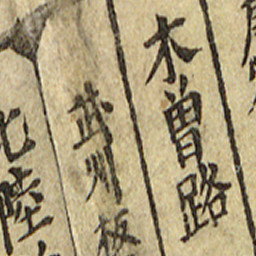 木曽路
武州
北陸